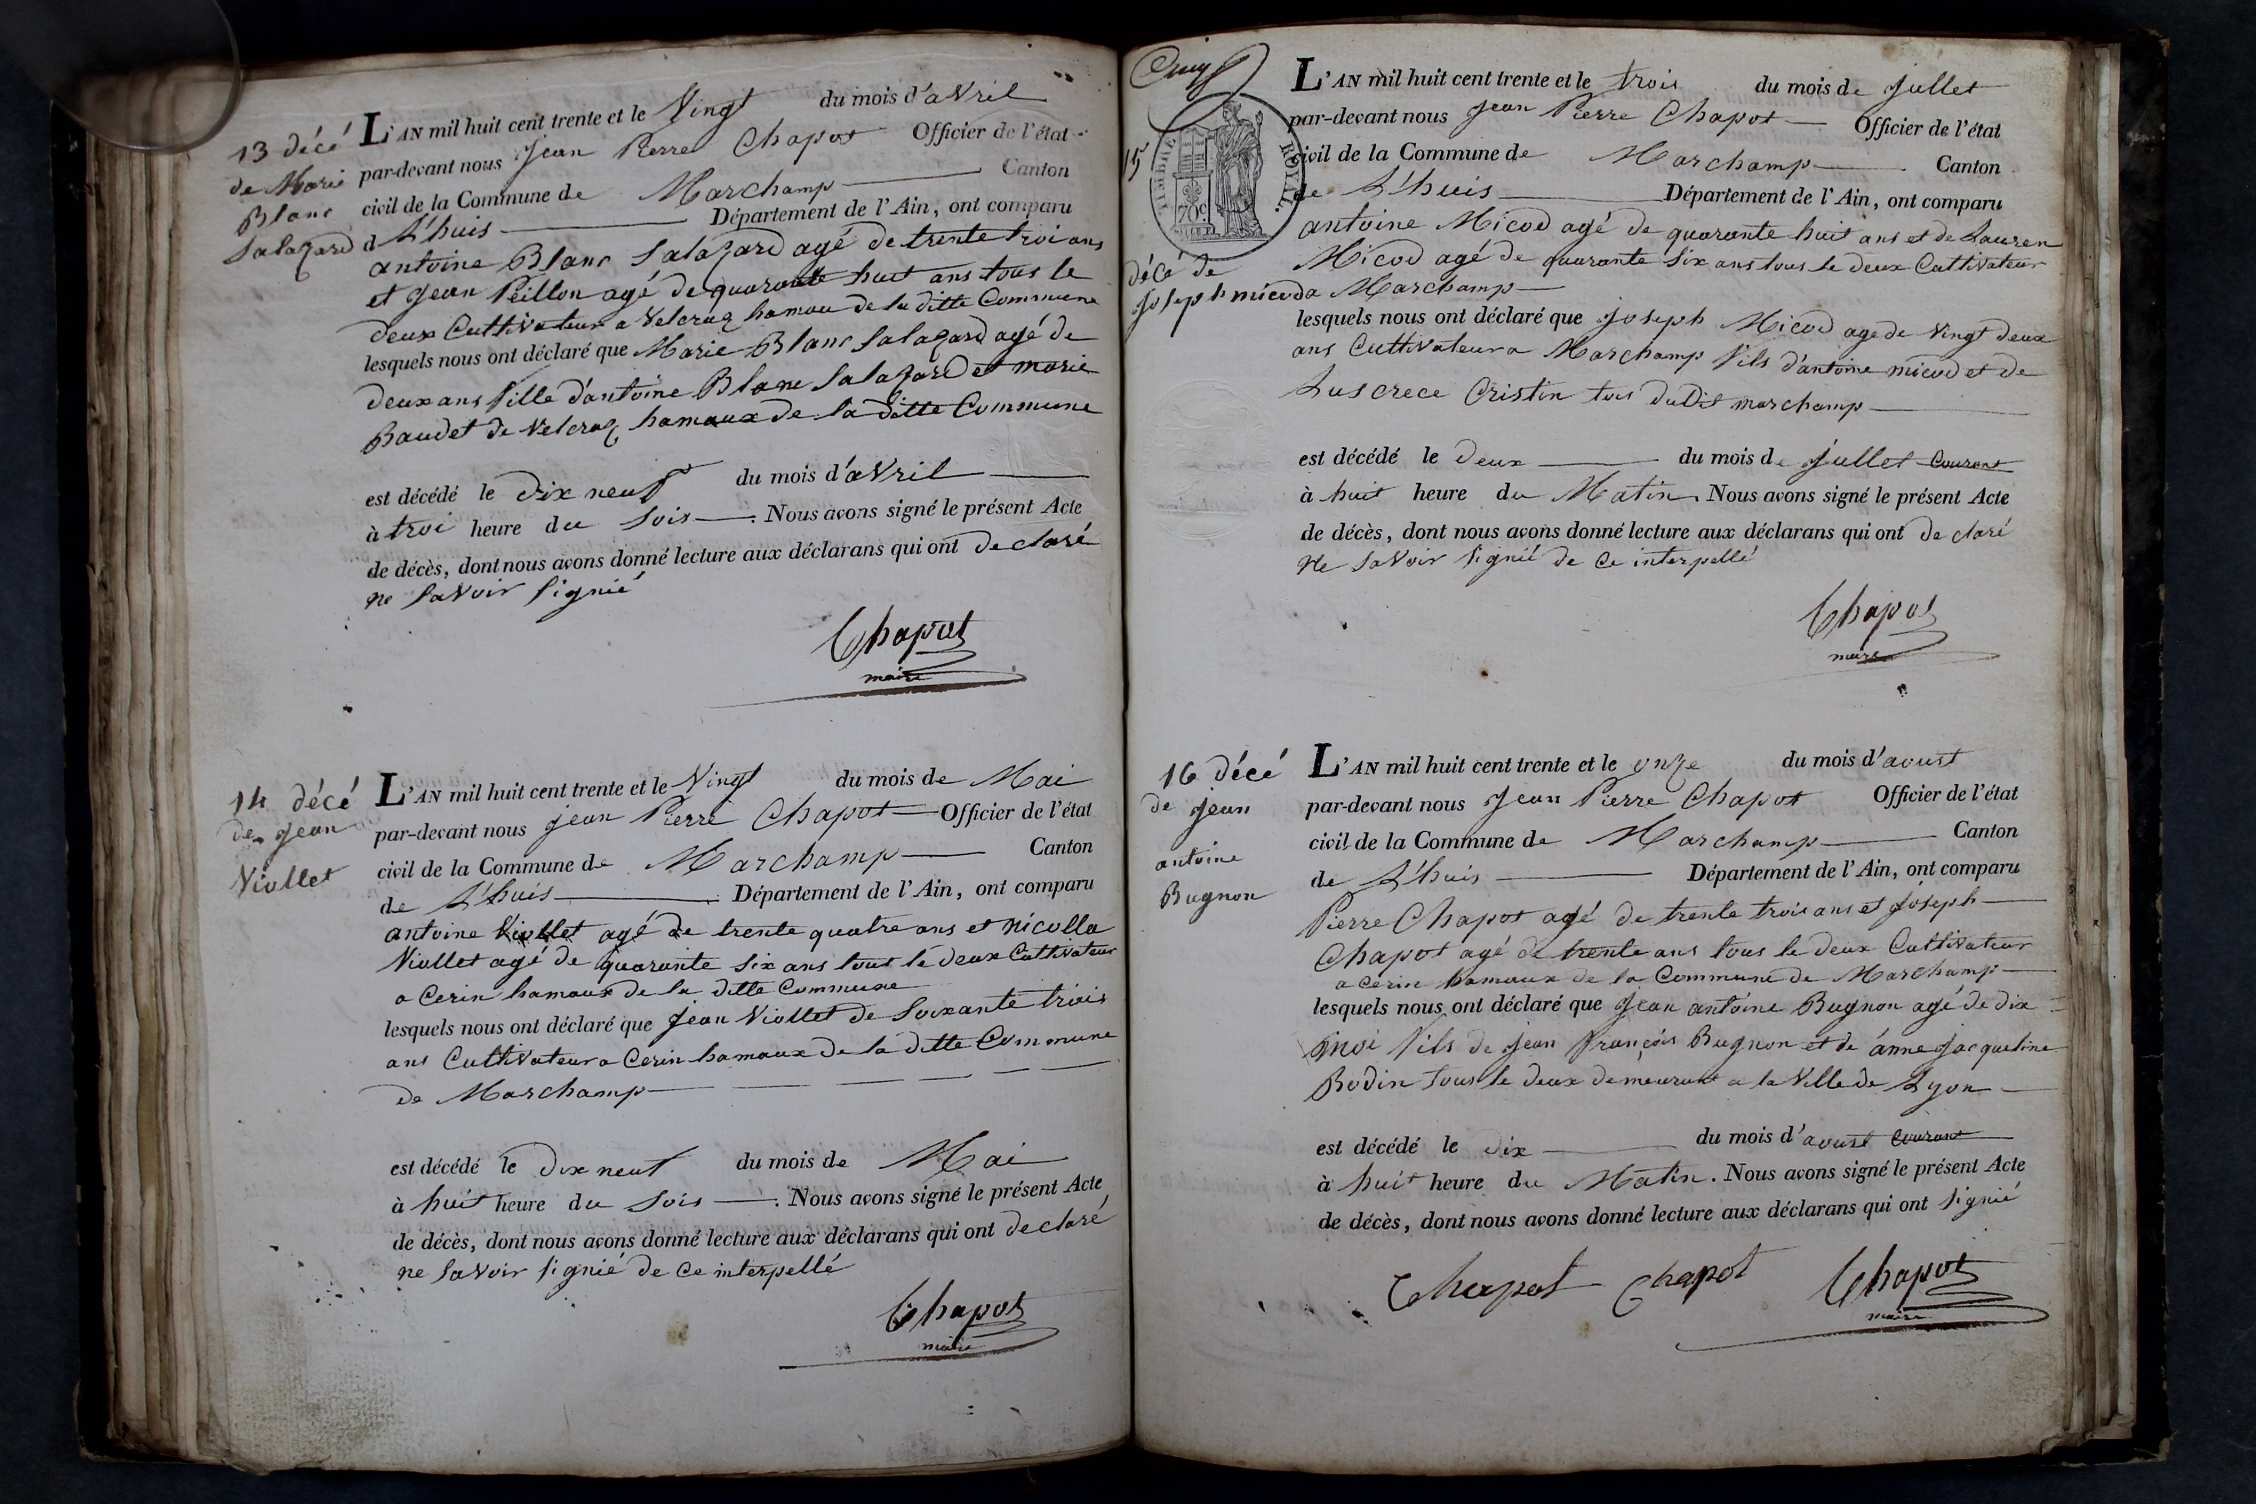 13 décé
de Marie
Blanc
Salazard
L'AN mil huit cent trente et le Vingt du mois d'aVril
par-devant nous Jean Pierre Chapot Officier de l'état
civil de la Commune de Marchamp Canton
d L'huis Département de l'Ain, ont comparu
antoine Blanc Salazard agé de trente troi ans
et Jean Peillon agé de quarante huit ans tous le
deux CultiVateur a Velcraz hamau de la ditte Commune
lesquels nous ont déclaré que Marie Blanc Salazard agé de
deux ans fille d'antoine Blanc Salazard et marie
Baudet de Velcraz hamaux de la ditte Commune
est décédé le dix neuf du mois d'aVril
à troi heure du Soir. Nous avons signé le présent Acte
de décès, dont nous avons donné lecture aux déclarans qui ont declaré
ne saVoir signié
Chapot
maire
14 décé
de Jean
Viollet
L'AN mil huit cent trente et le Vingt du mois de Mai
par-devant nous jean Pierre Chapot Officier de l'état
civil de la Commune de Marchamp Canton
de L'huis Département de l'Ain, ont comparu
antoine Viollet agé de trente quatre ans et nicolla
Viollet agé de quarante six ans tout le deux CultiVateur
a Cerin hamaux de la ditte Commune
lesquels nous ont déclaré que jean Viollet de Soixante triois
ans CultiVateur a Cerin hamaux de la ditte Commune
de Marchamp
est décédé le dix neuf du mois de Mai
à huit heure du Soir. Nous avons signé le présent Acte
de décès, dont nous avons donné lecture aux déclarans qui ont declaré
ne saVoir signié de ce interpellé
Chapot
maire
TIMBRE ROYAL
70c
15
décé de
Joseph micod
L'AN mil huit cent trente et le trois du mois de Jullet
par-devant nous Jean Pierre Chapot Officier de l'état
civil de la Commune de Marchamp Canton
de L'huis Département de l'Ain, ont comparu
antoine Micod agé de quarante huit ans et de Lauren
Micod agé de quarante Six ans tous le deux CultiVateur
a Marchamp
lesquels nous ont déclaré que joseph Micod age de Vingt deux
ans CultiVateur a Marchamp fils d'antoine micod et de
Luscrece Cristin tous duDit marchamp
est décédé le deux du mois de Jullet Courant
à huit heure du Matin. Nous avons signé le présent Acte
de décès, dont nous avons donné lecture aux déclarans qui ont de claré
ne saVoir signié de ce interpellé
Chapot
maire
16 décé
de jean
antoine
Bugnon
L'AN mil huit cent trente et le onze du mois d'aoust
par-devant nous Jean Pierre Chapot Officier de l'état
civil de la Commune de Marchamp Canton
de L'huis Département de l'Ain, ont comparu
Pierre Chapot agé de trente trois ans et joseph
Chapot agé de trente ans tous le deux CultiVateur
a Cerin hamaux de la Commune de Marchamp
lesquels nous ont déclaré que Jean antoine Bugnon agé de dix
moi fils de jean françois Bugnon et de anne Jacqueline
Bodin tous le deux demeurant a la Ville de Lyon
est décédé le dix du mois d'aoust Courant
à huit heure du Matin. Nous avons signé le présent Acte
de décès, dont nous avons donné lecture aux déclarans qui ont signié
Chapot Chapot Chapot
maire